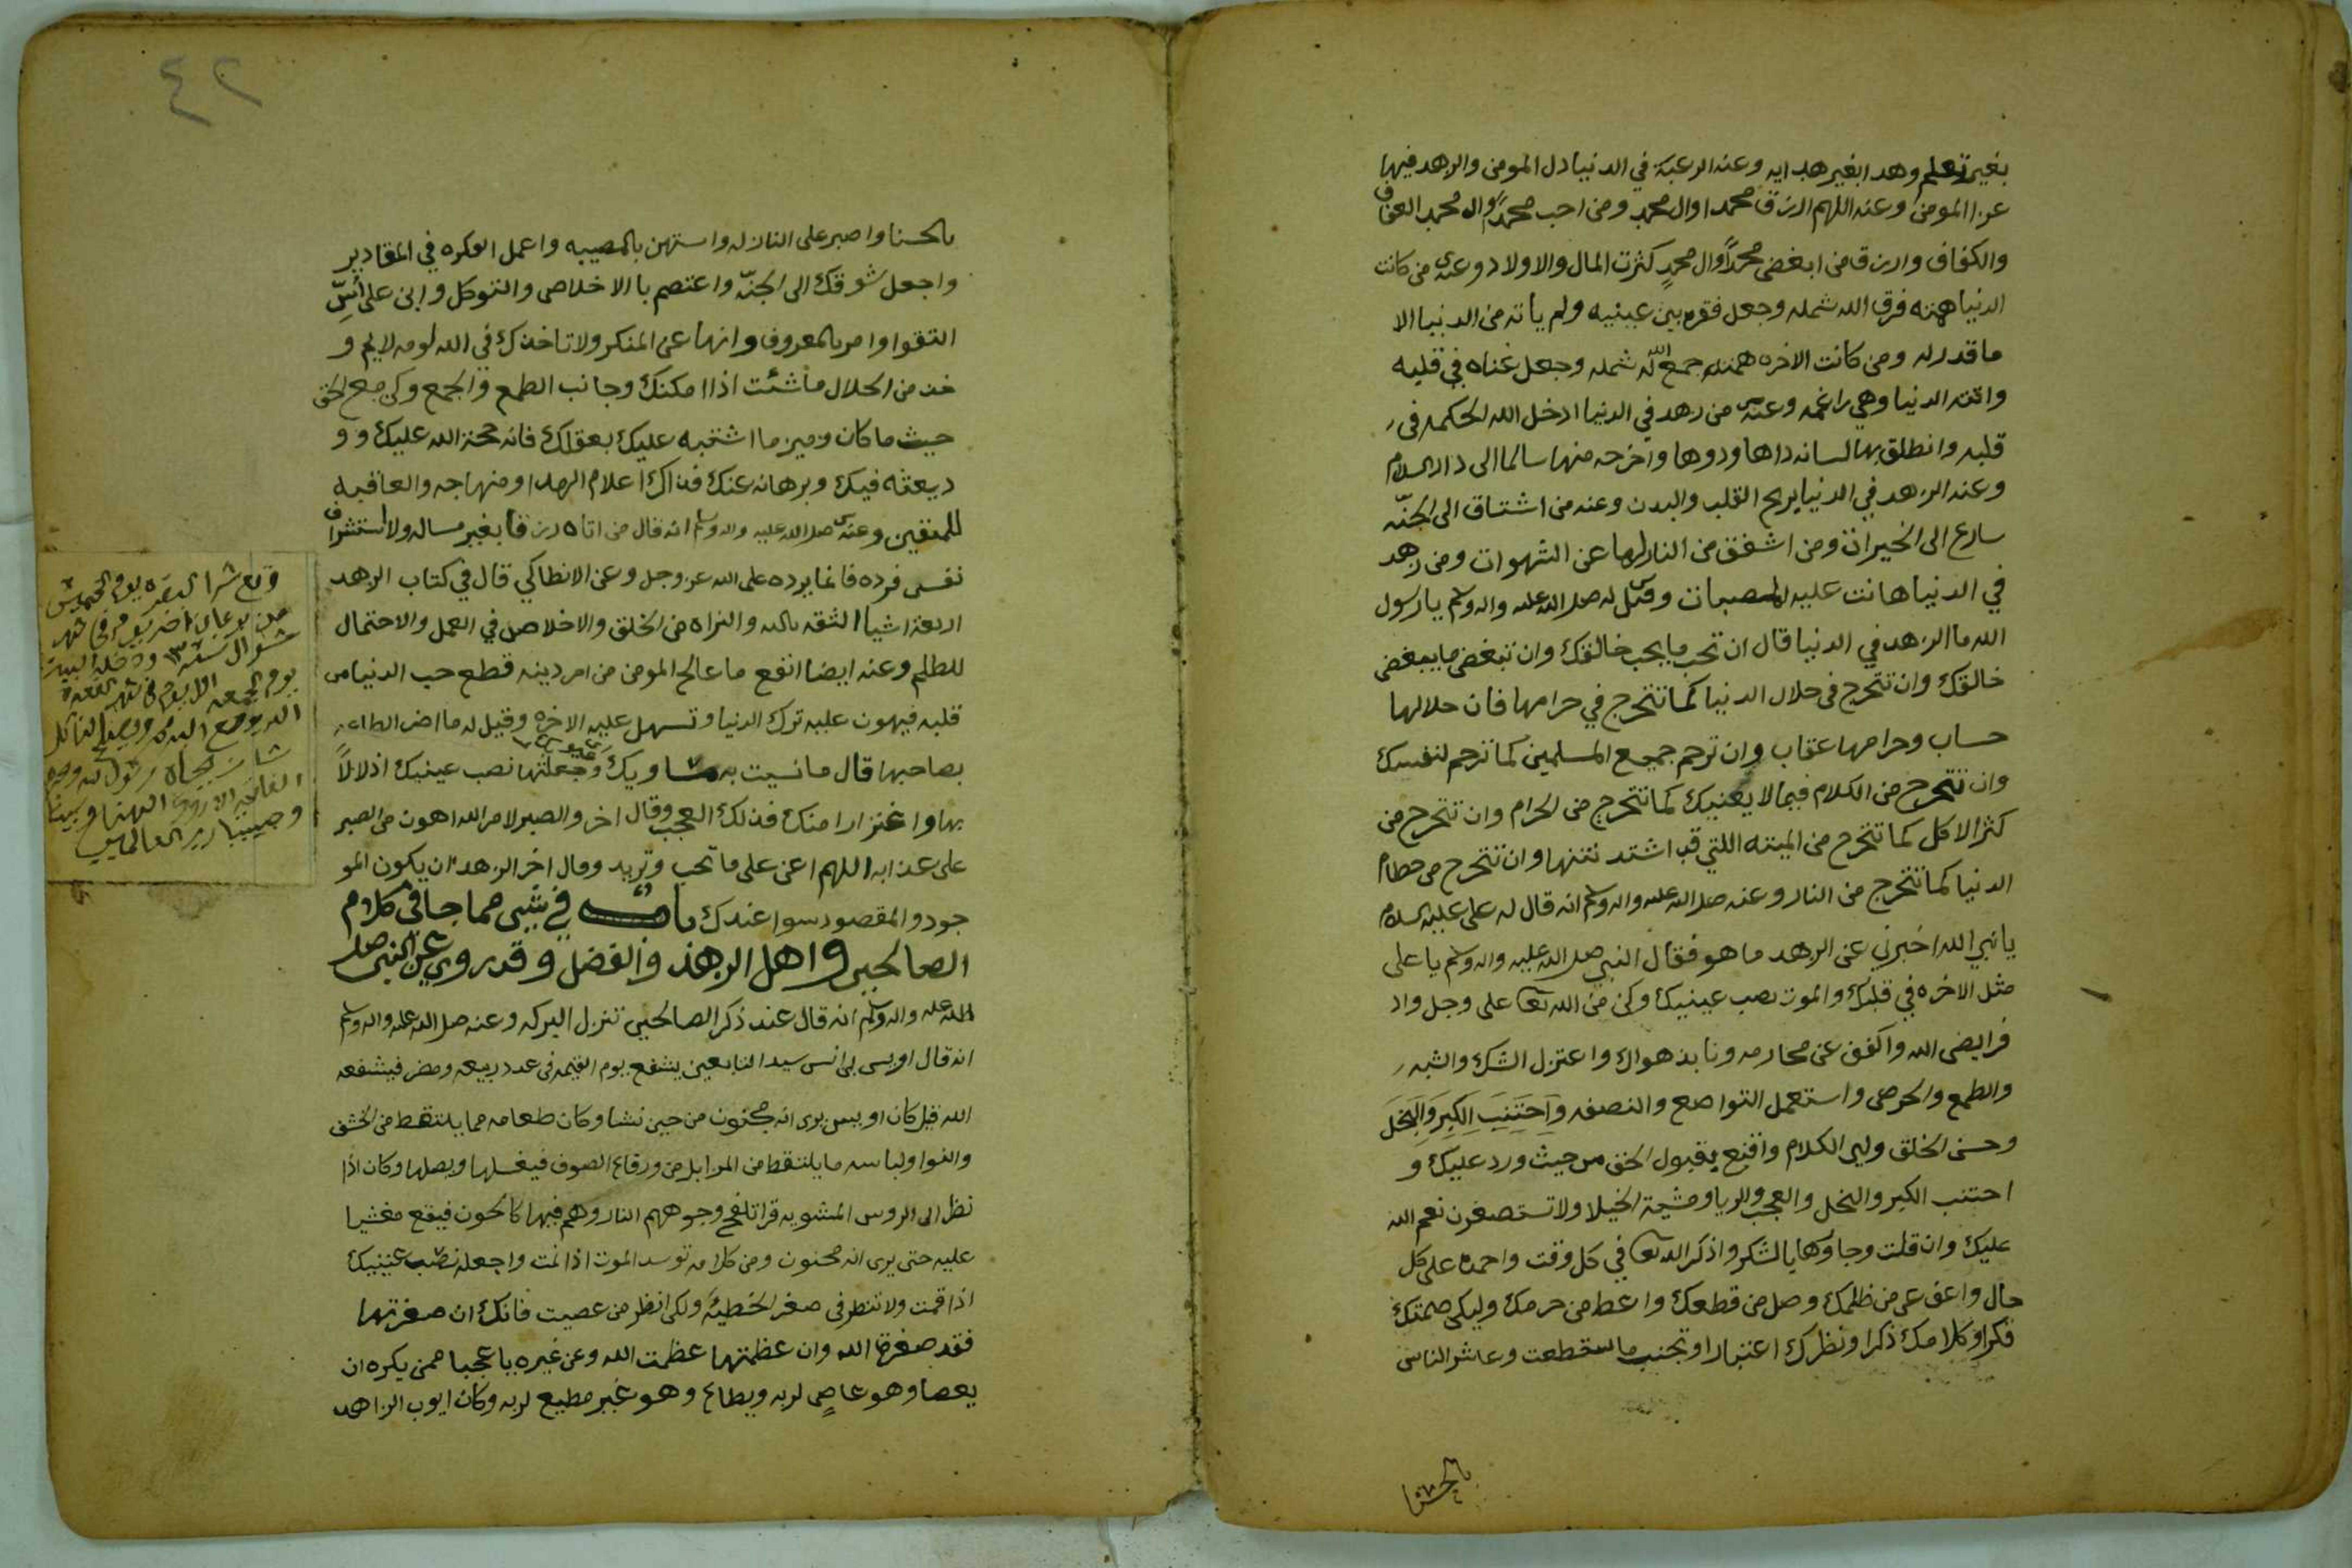 بغير تعلم وهدا بغير هدايه وعنه الرغبة في الدنيا دل المومن والزهد فيها
عز المومن وعنه اللهم ارزق محمدا وال محمد ومن احب محمدً وال محمد العفاف
والكفاف وارزق من ابغض محمدًا وال محمدٍ كثرت المال والاولاد وعنه من كانت
الدنيا همته فرق الله شمله وجعل فقره بين عينيه ولم ياته من الدنيا الا
ما قدر له ومن كانت الاخره همته جمع الله شمله وجعل غناه في قلبه
واتته الدنيا وهي راغمه وعنه من زهد في الدنيا ادخل الله الحكمه في
قلبه وانطلق بها لسانه داها ودوها واخرجه منها سالما الى دار السلام
وعنه الزهد في الدنيا يريح القلب والبدن وعنه من اشتاق الى الجنّه
سارع الى الخيرات ومن اشفق من النار لها عن الشهوات ومن زهد
في الدنيا هانت عليه المصيبات وقيل له صلى الله عليه واله وسلم يا رسول
الله ما الزهد في الدنيا قال ان تحب ما يحب خالقك وان تبغض ما يبغض
خالقك وان تتحرج في حلال الدنيا كما تتحرج في حرامها فان حلالها
حساب وحرامها عقاب وان ترحم جميع المسلمين كما ترحم لنفسك
وان تتحرج من الكلام فيما لا يعنيك كما تتحرج من الحرام وان تتحرج من
كثر الاكل كما تتحرج من الميته اللتي قد اشتد نتنها وان تتحرج من حطام
الدنيا كما تتحرج من النار وعنه صلى الله عليه واله وسلم انه قال له علي عليه السلام
يا نبي الله اخبرني عن الزهد ما هو فقال النبي صلى الله عليه واله وسلم يا علي
مثل الاخره في قلبك والموت نصب عينيك وكن من الله تعا على وجل واد
فرايض الله واكفف عن محارمه ونابذ هواك واعتزل الشك والشبه
والطمع والحرص واستعمل التواضع والنصفه وَاجتَنِبَ الكِبرَ وَالبخلَ
وحسن الخلق ولين الكلام واقنع بقبول الحق من حيث ورد عليك و
اجتنب الكبر والبخل والعجب والريا ومشية الخيلا ولا تستصغرن نعم الله
عليك وان قلت وجاوها بالشكر واذكر الله تعا في كل وقت واحمده على كل
حال واعف عن من ظلمك وصل من قطعك واعط من حرمك وليكن صمتك
فكرا وكلامك ذكرا ونظرك اعتبارا وتجنب ما استطعت وعاشر الناس
بالحسنا
٤٢
بالحسنا واصبر على النازله واستهن بالمصيبه واعمل الفكره في المقادير
واجعل شوقك الى الجنّه واعتصم بالاخلاص والتوكل وابن على أسِّ
التقوا وامر بالمعروف وانها عن المنكر ولا تاخذك في الله لومه لايم و
خذ من الحلال ما شئت اذا امكنك وجانب الطمع والجمع وكن مع الحق
حيث ما كان وميز ما اشتبه عليك بعقلك فانه حجة الله عليك وو
ديعته فيك وبرهانه عندك فذاك اعلام الهدا ومنهاجه والعاقبه
للمتقين وعنه صلى الله عليه واله وسلم انه قال من اتاه رزقا بغير مساله ولا استشراف
نفس فرده فانما يرده على الله عز وجل وعن الانطاكي قال في كتاب الزهد
اربعة اشيا الثقه بالله والبراه من الخلق والاخلاص في العمل والاحتمال
للظلم وعنه ايضا انفع ما عالج المومن من امر دينه قطع حب الدنيا من
قلبه فيهون عليه ترك الدنيا وتسهل عليه الاخره وقيل له ما اضر الطاعه
بصاحبها قال ما نسيت به مساويك وجعلتها نصب عينيك اذلالاً
بها واغترارا منك فذلك العجب وقال اخر والصبر لامر الله اهون من الصبر
على عذابه اللهم اعنى على ما تحب وتريد وقال اخر الزهد ان يكون المو
جود والمقصود سوا عندك باب في شي مما جا في كلام
الصالحين واهل الزهد والفضل وقد روي عن النبي صلى
الله عليه واله وسلم انه قال عند ذكر الصالحين تنزل البركه وعنه صلى الله عليه واله وسلم
انه قال اويس بن انس سيد التابعين يشفع يوم القيمه في عدد ربيعه ومضر فيشفعه
الله قيل كان اويس يرى انه مجنون من حين نشا وكان طعامه مما يلتقط من الحشف
والنوا ولباسه ما يلتقط من المزابل من رقاع الصوف فيغسلها ويصلها وكان اذا
نظر الى الروس المشويه قرا تلفح وجوههم النار وهم فيها كالحون فيقع مغشيا
عليه حتى يرى انه مجنون ومن كلامه توسد الموت اذا نمت واجعله نصب عينيك
اذا قمت ولا تنظر في صغر الخطيئه ولكن انظر من عصيت فانك ان صغرتها
فقد صغرت الله وان عظمتها عظمت الله وعن غيره يا عجبا ممن يكره ان
يعصا وهو عاصٍ لربه ويطاع وهو غير مطيع لربه وكان ايوب الزاهد
وقع شرا البقره يوم الخميس
شوال سنه ١٣
يوم الجمعه
وحبيبنا رب العالمين